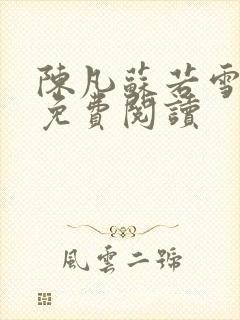 陳凡蘇若雪
免費閱讀
風雲二號